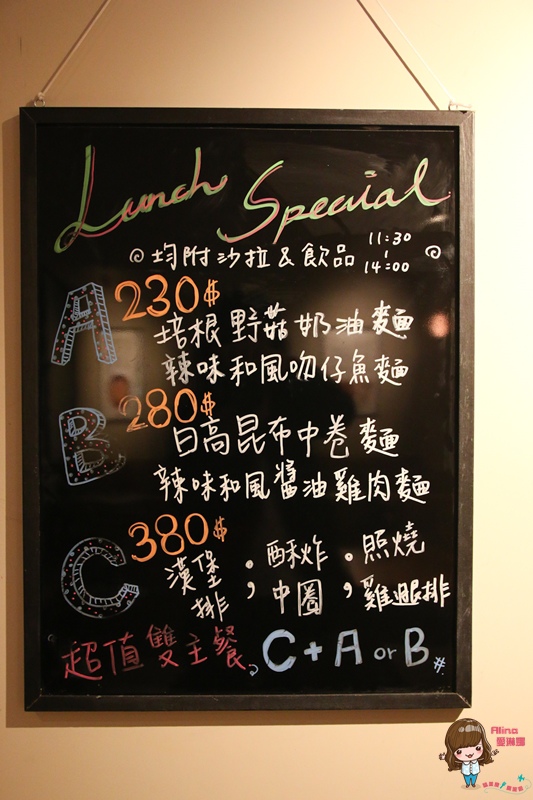 Lunch Special
均附沙拉 & 飲品 11:30 | 14:00
A 230$
培根野菇奶油麵
辣味和風吻仔魚麵
B 280$
日高昆布中卷麵
辣味和風醬油雞肉麵
C 380$
漢堡排，酥炸中圈，照燒雞腿排
超值雙主餐 C + A or B #
Alina
愛琳娜